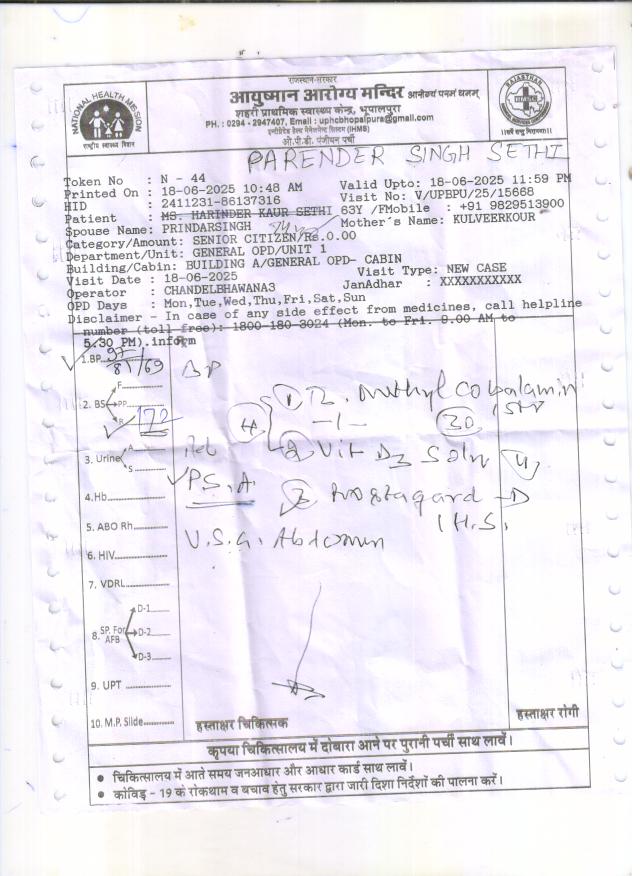 राजस्थान-सरकार
आयुष्मान आरोग्य मन्दिर आरोग्यं परमं धनम्
शहरी प्राथमिक स्वास्थ्य केन्द्र, भूपालपुरा
PH. : 0294 - 2947407, Email : uphcbhopalpura@gmail.com
इन्टीग्रेटेड हेल्थ मैनेजमेन्ट सिस्टम (IHMS)
ओ.पी.डी. पंजीयन पर्ची
NATIONAL HEALTH MISSION
राष्ट्रीय स्वास्थ्य मिशन
RAJASTHAN
PARENDER SINGH SETHI
Token No : N - 44
Printed On : 18-06-2025 10:48 AM Valid Upto: 18-06-2025 11:59 PM
HID : 2411231-86137316 Visit No: V/UPBPU/25/15668
Patient : MS. HARINDER KAUR SETHI 63Y /F Mobile : +91 9829513900
Spouse Name: PRINDARSINGH Mother's Name: KULVEERKOUR
Category/Amount: SENIOR CITIZEN/Rs.0.00
Department/Unit: GENERAL OPD/UNIT 1
Building/Cabin: BUILDING A/GENERAL OPD- CABIN
Visit Date : 18-06-2025 Visit Type: NEW CASE
Operator : CHANDELBHAWANA3 JanAdhar : XXXXXXXXXXX
OPD Days : Mon,Tue,Wed,Thu,Fri,Sat,Sun
Disclaimer - In case of any side effect from medicines, call helpline
number (toll free): 1800-180-3024 (Mon. to Fri. 9.00 AM to
5.30 PM).inform
1.BP
2. BS F PP R 172
3. Urine A S
4.Hb
5. ABO Rh
6. HIV
7. VDRL
8. SP. For AFB D-1 D-2 D-3
9. UPT
10. M.P. Slide
1 Methylcobalamin
30
2 Vit D3 Soln 4
P.S.A
3 D
1 H.S.
U.S.G. Abdomen
हस्ताक्षर चिकित्सक हस्ताक्षर रोगी
कृपया चिकित्सालय में दोबारा आने पर पुरानी पर्ची साथ लावें।
• चिकित्सालय में आते समय जनआधार और आधार कार्ड साथ लावें।
• कोविड - 19 के रोकथाम व बचाव हेतु सरकार द्वारा जारी दिशा निर्देशों की पालना करें।